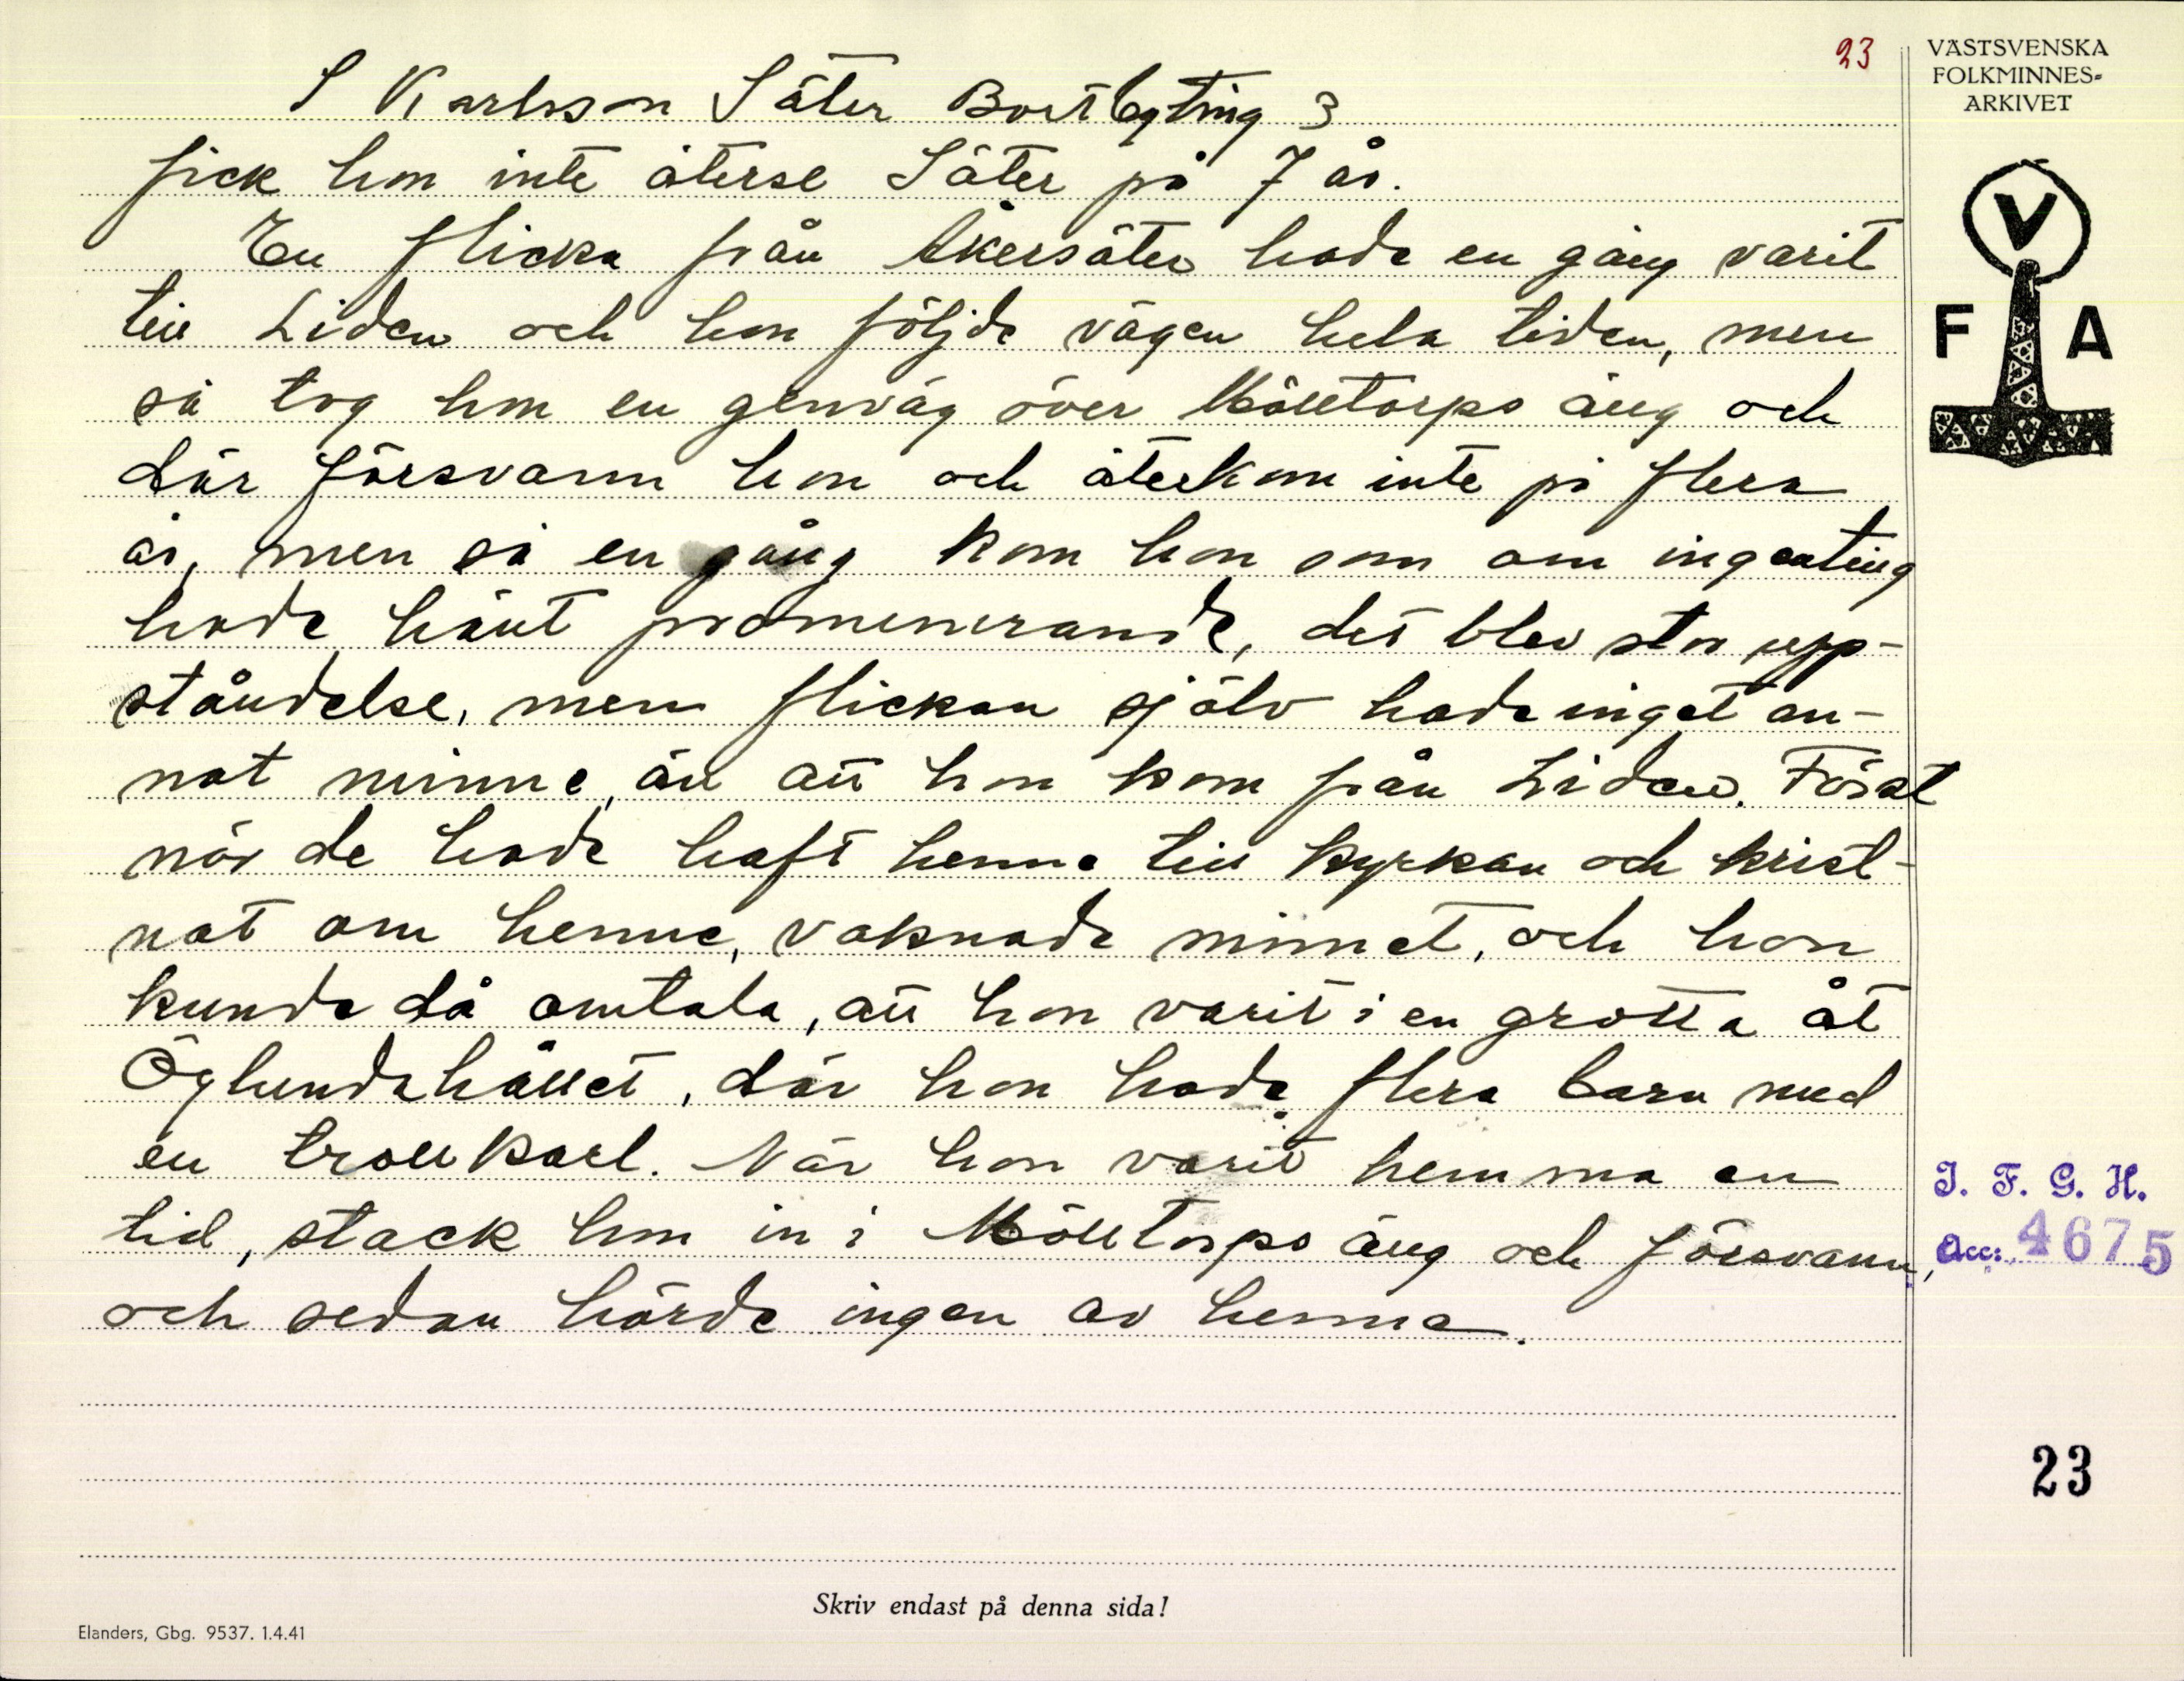 23
VÄSTSVENSKA
FOLKMINNES-
ARKIVET
S Karlsson Säter Bortbyting 3
fick hon inte återse Säter på 7 år.
En flicka från Åkersäter hade en gång varit
till Liden och hon följde vägen hela tiden, men
så tog hon en genväg över Mölltorps äng och
där försvann hon och återkom inte på flera
år, men så en gång kom hon som om ingenting
hade hänt promenerande, det blev stor upp-
ståndelse, men flickan själv hade inget an-
nat minne, än att hon kom från Liden. Först
när de hade haft henne till kyrkan och krist-
nat om henne, vaknade minnet, och hon
kunde då omtala, att hon varit i en grotta åt
Öglundahållet, där hon hade flera barn med
en trollkarl. När hon varit hemma en
tid, stack hon in i Mölltorps äng och försvann,
och sedan hörde ingen av henne.
V
F A
I. F. G. H.
Acc: 4675
23
Skriv endast på denna sida!
Elanders, Gbg. 9537. 1.4.41